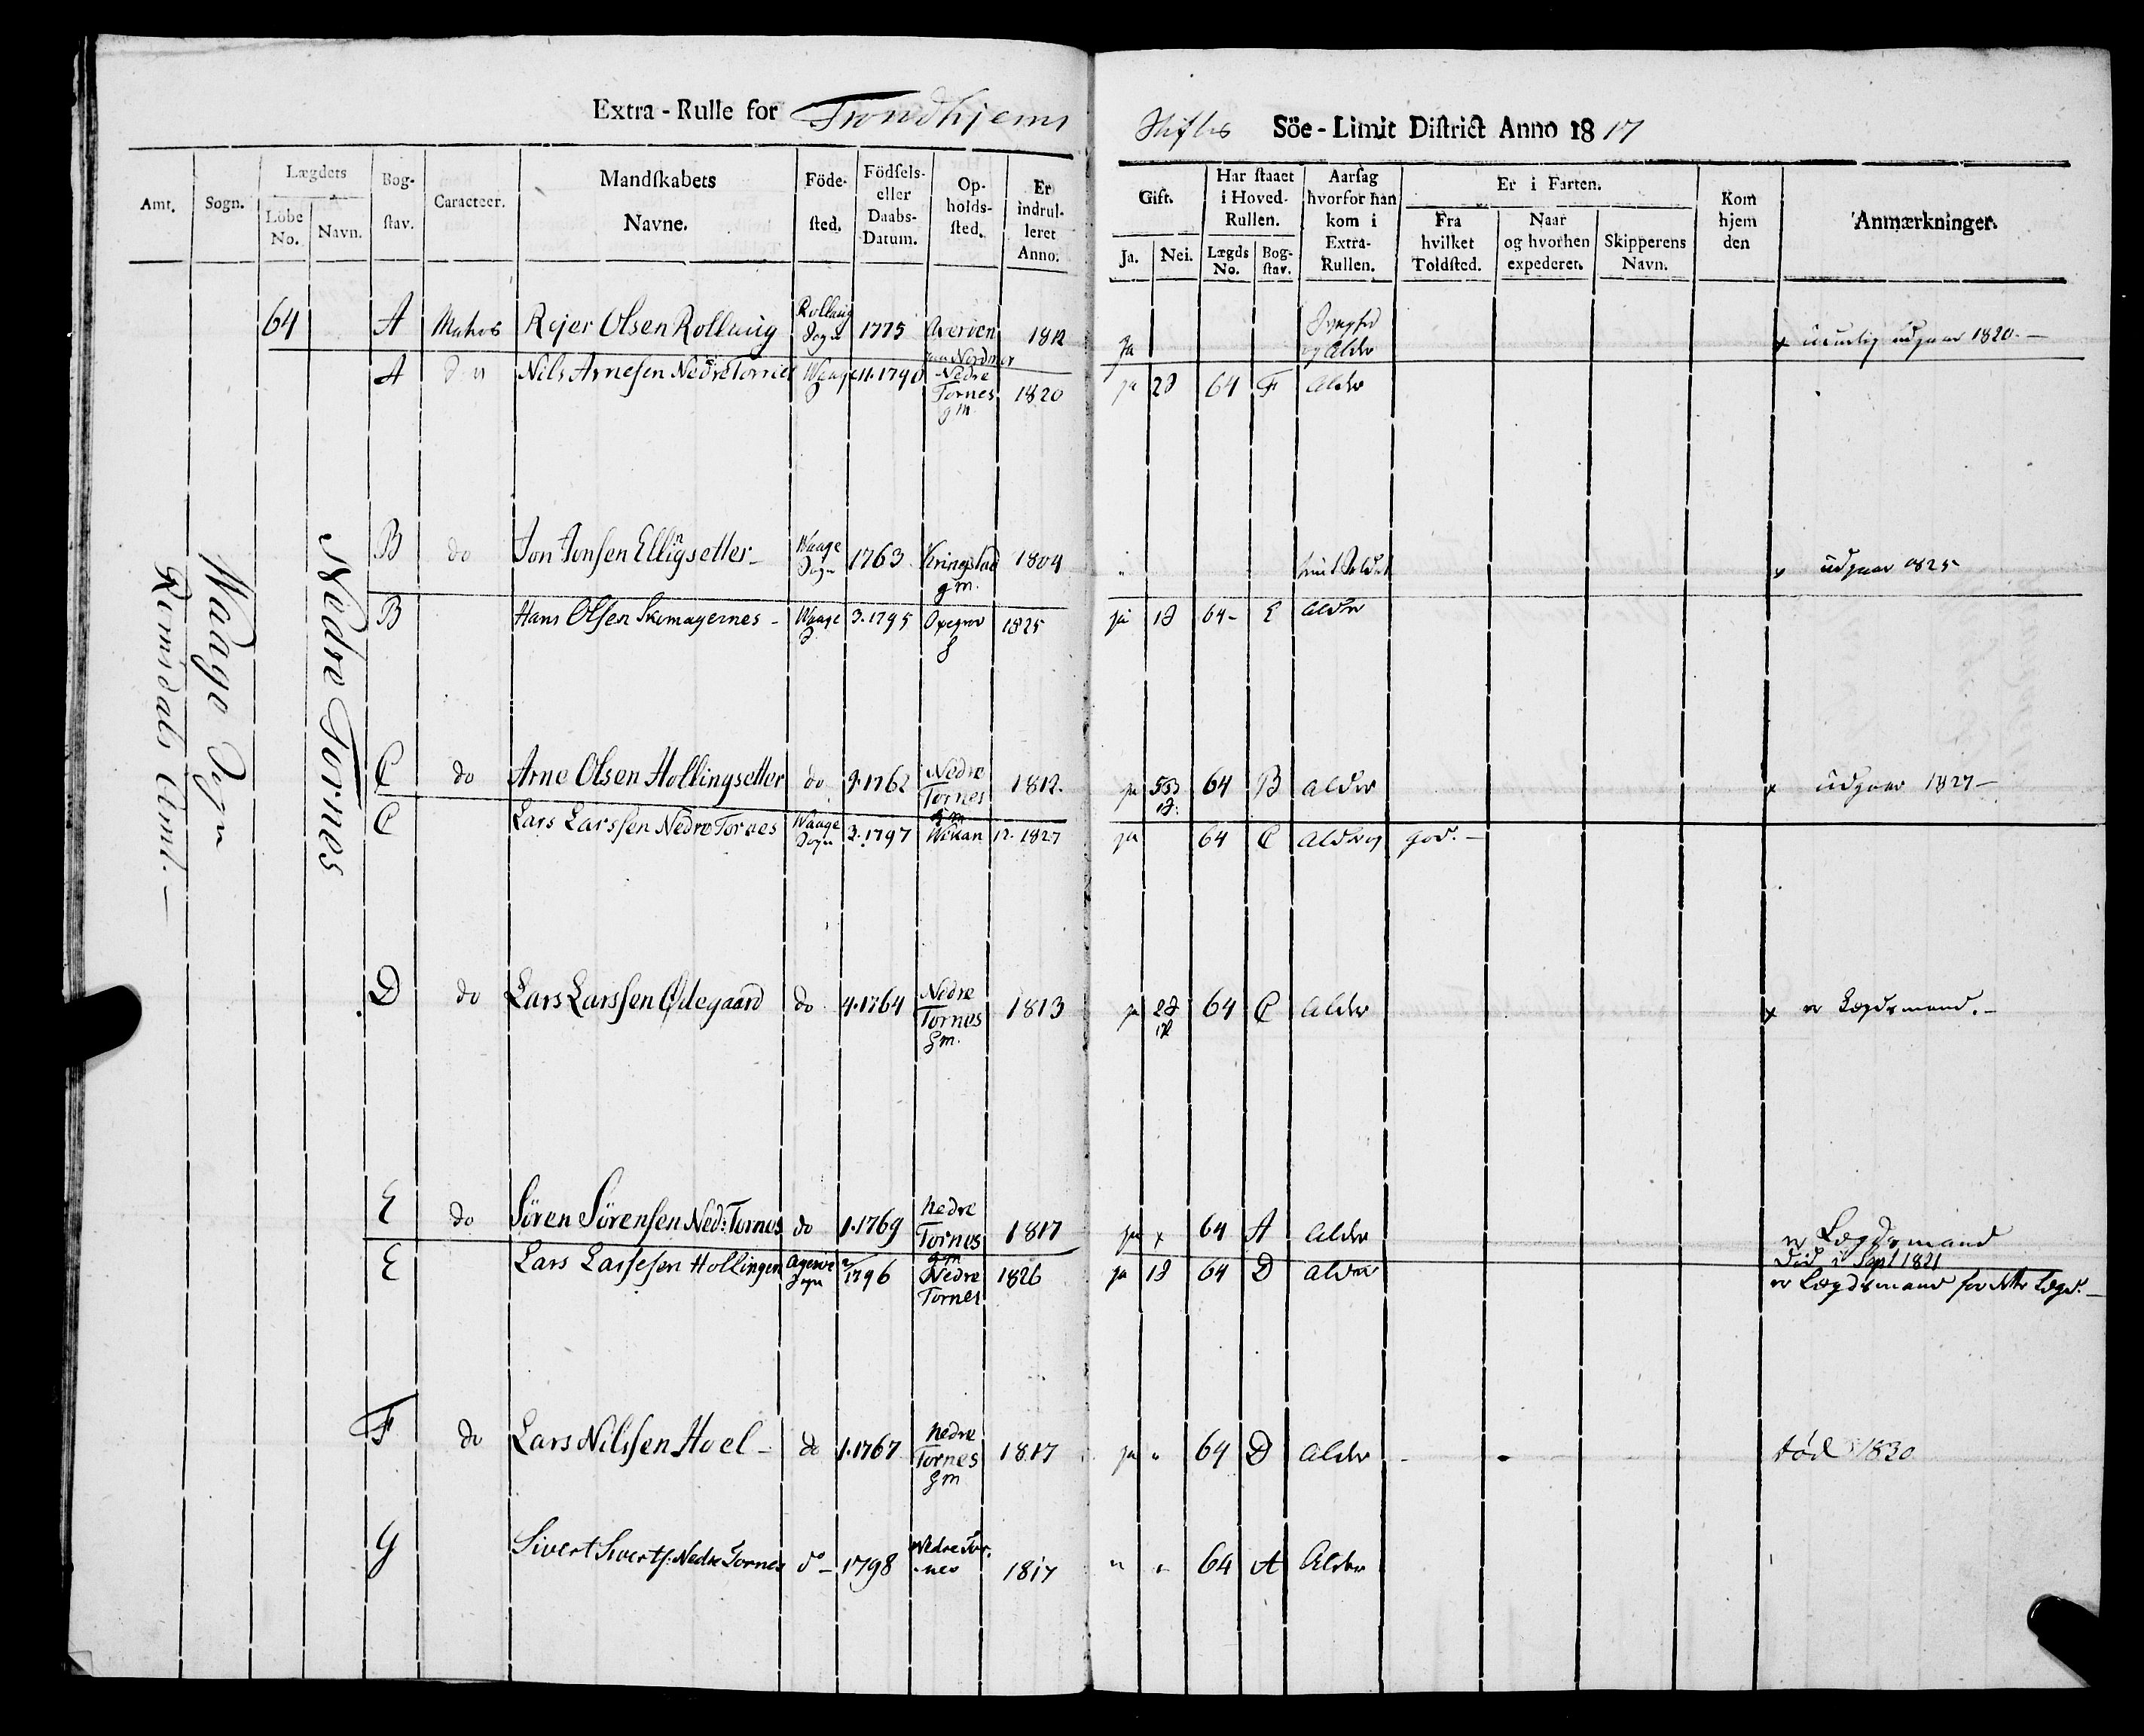 Extra-Rulle for Trondhjems Stifts Söe-Limit District Anno 1817
Amt. Sogn. Lægdets Löbe No. Navn. Bog-stav. Caracteer. Mandskabets Navne. Föde-sted. Födsels- eller Daabs-Datum. Op-holds-sted. Er indrul-leret Anno.
Gift. Ja. Nei. Har staaet i Hoved-Rullen. Lægds No. Bog-stav. Aarsag hvorfor han kom i Extra-Rullen. Er i Farten. Fra hvilket Toldsted. Naar og hvorhen expederet. Skipperens Navn. Kom hjem den Anmærkninger.
Romsdals Amt. —
Waage Sogn
Nedre Tornes
64 A Matros Rejer Olsen Rollaug Rollaug Sogn 1775 Averöen paa Nordmør 1812 ja og Alder x udgaar 1820. —
A Nils Arnesen Nedre Tornes Waage 11. 1790 Nedre Tornes gm 1820 ja 2 64 F Alder
B do Jon Jonsen Ellingsetter Waage Sogn 1763 Kringstad gm. 1804 x udgaar 1825
B Hans Olsen Waage 3. 1795 1825 ja 1 64 - E Alder
C do Arne Olsen Hollingsetter do 9. 1762 Nedre Tornes gm 1812. ja 64 B Alder x udgaar 1827 —
C Lars Larssen Nedre Tornes Waage Sogn 3. 1797 12. 1827 ja 64 C Alder og god. —
D do Lars Larssen Ødegaard do 4. 1764 Nedre Tornes gm. 1813 ja 2 64 C Alder x er Lægdsmand. —
E do Sören Sörensen Ned: Tornes do 1. 1769 Nedre Tornes gm 1817 ja x 64 A Alder er Lægdsmand
Död i Sept 1821
E Lars Larsesen Hollingen Sogn 1796 Nedre Tornes 1826 ja 1 64 D Alder er Lægdsmand for dette Lægd. —
F do Lars Nilssen Hoel - do 1. 1767 Nedre Tornes gm 1817 ja " 64 D Alder död 1830
G Sivert Siverts: Nedre Tornes do - 1798 Nedre Tor-nes 1817 " " 64 A Alder